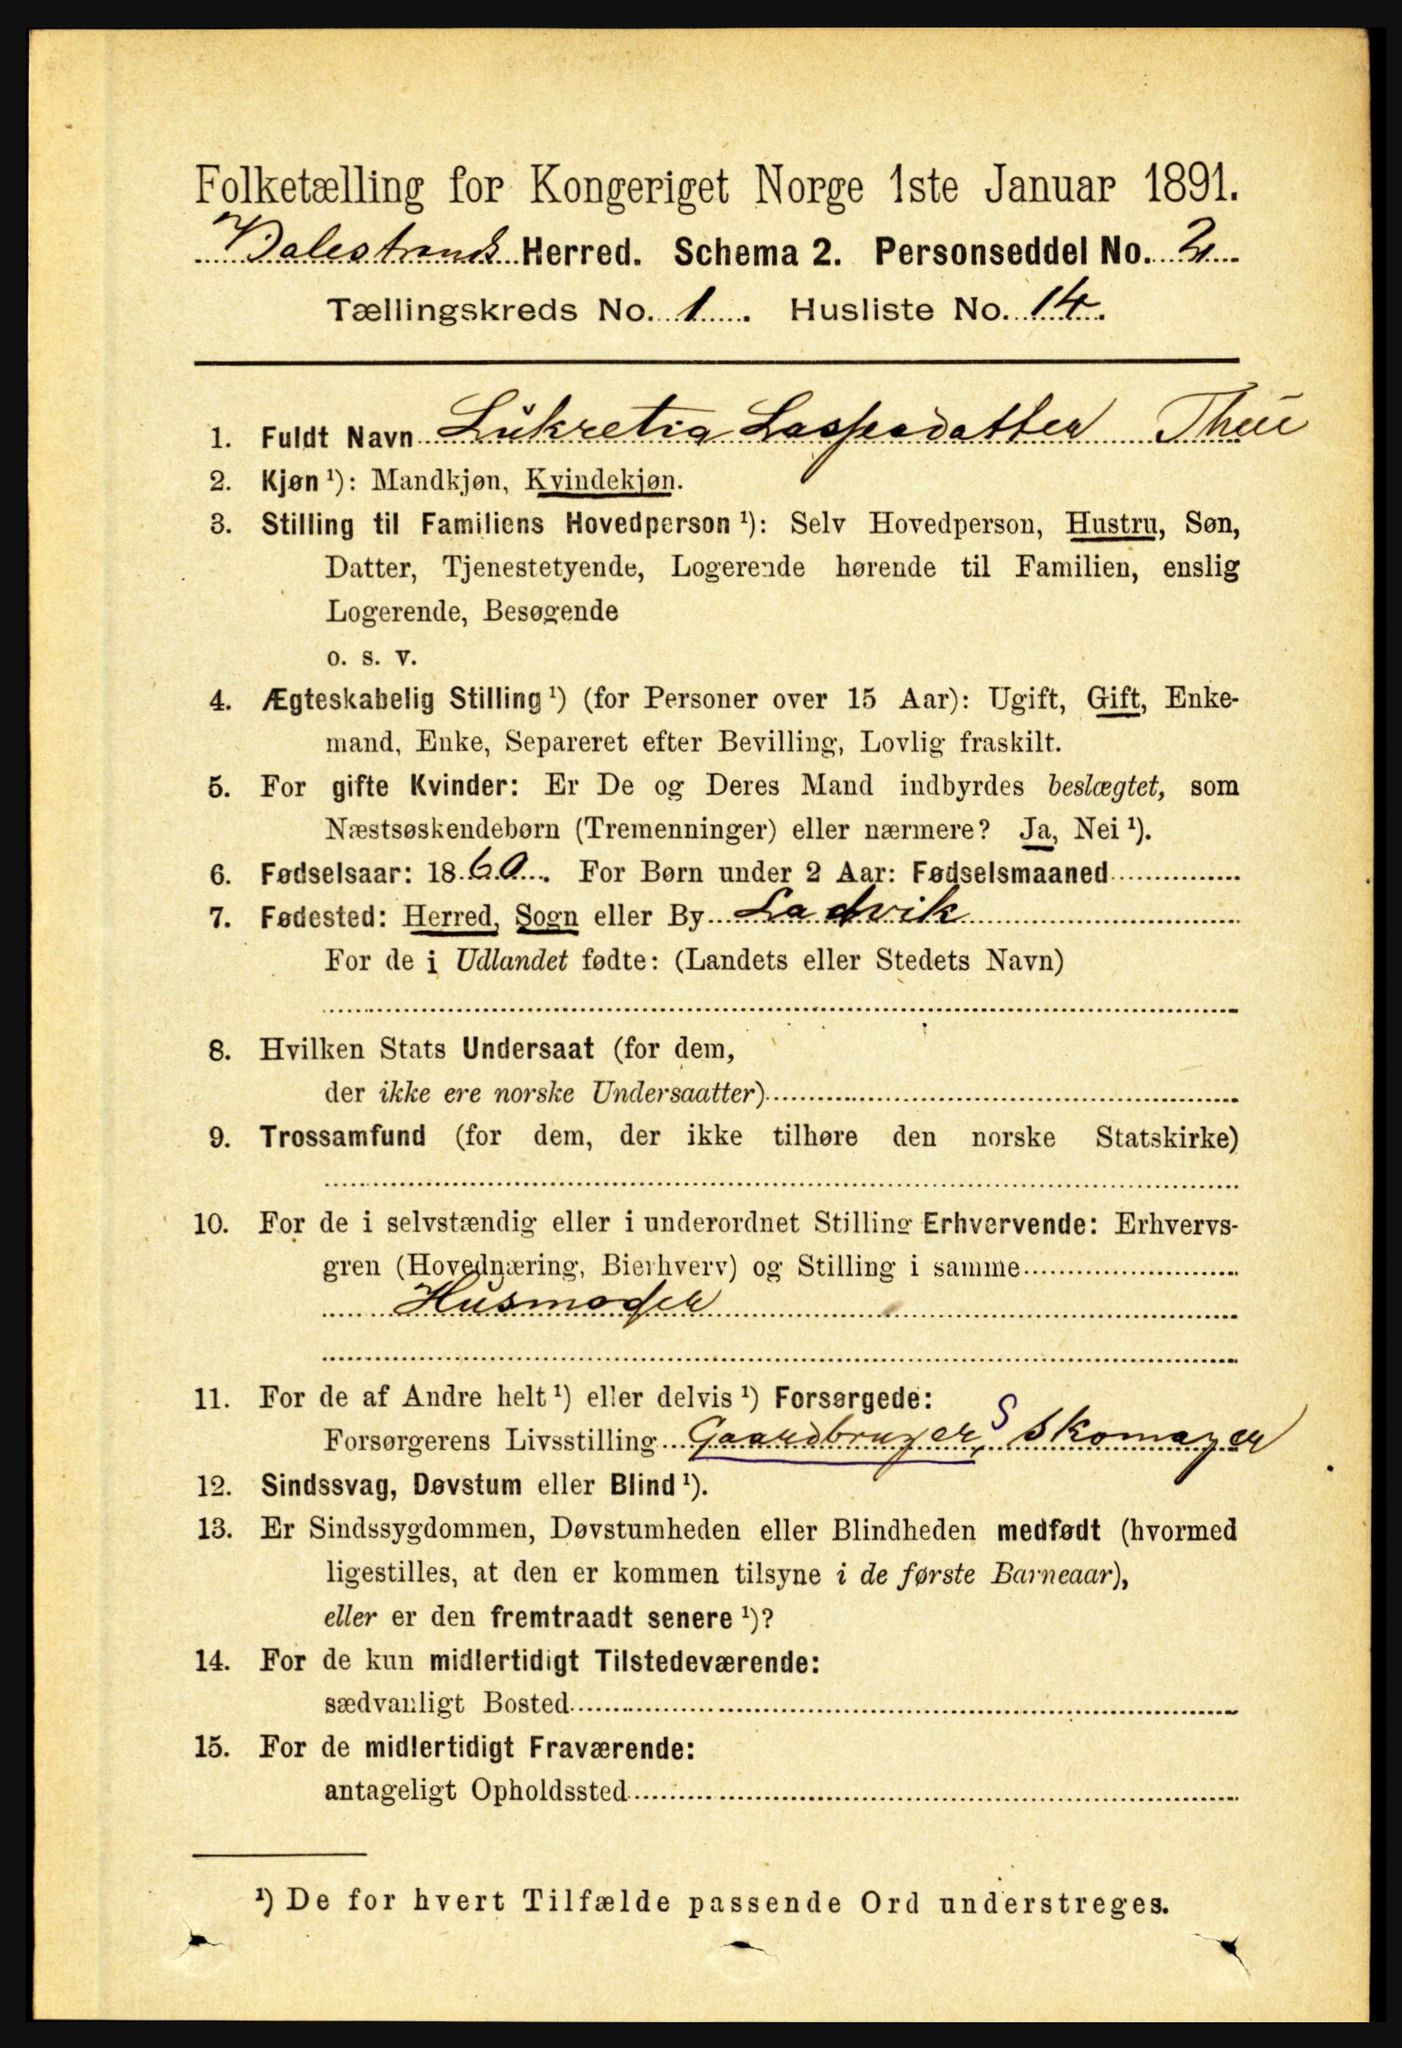 Folketælling for Kongeriget Norge 1ste Januar 1891.
Balestrand Herred. Schema 2. Personseddel No. 2
Tællingskreds No. 1. Husliste No. 14.
1. Fuldt Navn Lukretia Laspedatter Thue
2. Kjøn ¹): Mandkjøn, Kvindekjøn.
3. Stilling til Familiens Hovedperson ¹): Selv Hovedperson, Hustru, Søn,
Datter, Tjenestetyende, Logerende hørende til Familien, enslig
Logerende, Besøgende
o. s. v.
4. Ægteskabelig Stilling ¹) (for Personer over 15 Aar): Ugift, Gift, Enke-
mand, Enke, Separeret efter Bevilling, Lovlig fraskilt.
5. For gifte Kvinder: Er De og Deres Mand indbyrdes beslægtet, som
Næstsøskendebørn (Tremenninger) eller nærmere? Ja, Nei ¹).
6. Fødselsaar: 1860. For Børn under 2 Aar: Fødselsmaaned
7. Fødested: Herred, Sogn eller By Ladvik
For de i Udlandet fødte: (Landets eller Stedets Navn)
8. Hvilken Stats Undersaat (for dem,
der ikke ere norske Undersaatter)
9. Trossamfund (for dem, der ikke tilhøre den norske Statskirke)
10. For de i selvstændig eller i underordnet Stilling Erhvervende: Erhvervs-
gren (Hovednæring, Bierhverv) og Stilling i samme
Husmoder
11. For de af Andre helt ¹) eller delvis ¹) Forsørgede:
Forsørgerens Livsstilling Gaardbruger, S Skomager
12. Sindssvag, Døvstum eller Blind ¹).
13. Er Sindssygdommen, Døvstumheden eller Blindheden medfødt (hvormed
ligestilles, at den er kommen tilsyne i de første Barneaar),
eller er den fremtraadt senere ¹)?
14. For de kun midlertidigt Tilstedeværende:
sædvanligt Bosted
15. For de midlertidigt Fraværende:
antageligt Opholdssted
¹) De for hvert Tilfælde passende Ord understreges.